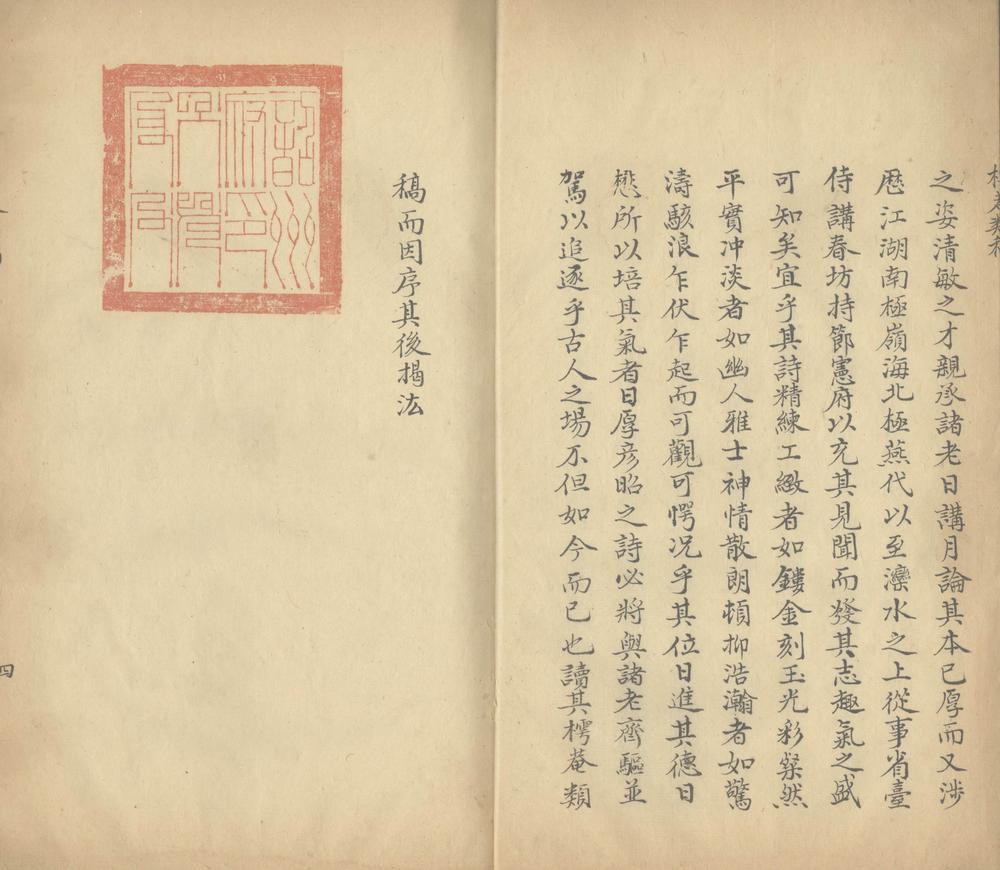 之姿清敏之才親承諸老日講月論其本已厚而又涉
歴江湖南極嶺海北極燕代以至灤水之上從事省臺
侍講春坊持節憲府以充其見聞而發其志趣氣之盛
可知矣宜乎其詩精練工緻者如鏤金刻玉光彩粲然
平實冲淡者如幽人雅士神情散朗頓抑浩瀚者如驚
濤駭浪乍伏乍起而可觀可愕况乎其位日進其德日
懋所以培其氣者日厚彦昭之詩必將與諸老齊驅並
駕以追逐乎古人之場不但如今而已也讀其樗菴類
稿而因序其後揭汯
四